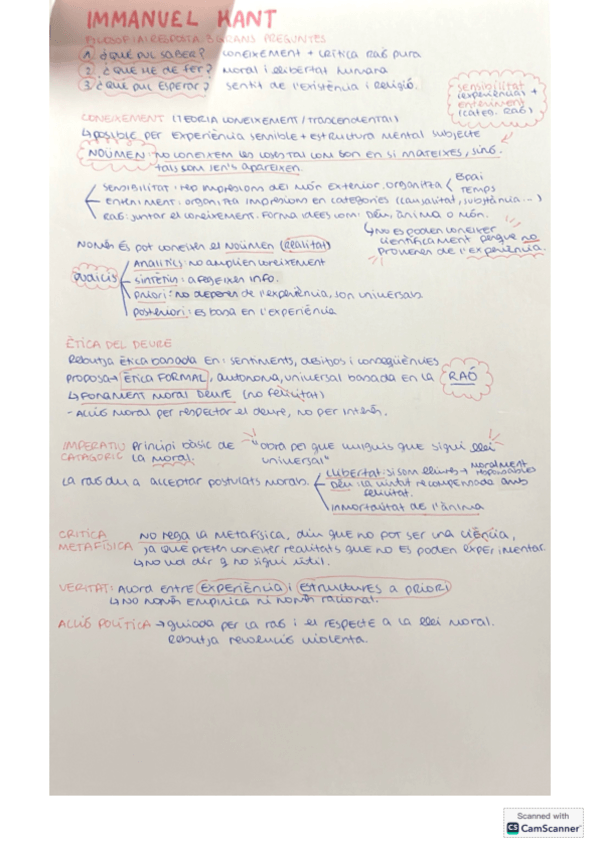 IMMANUEL KANT
FILOSOFIA: RESPOSTA 3 GRANS PREGUNTES
1. ¿QUÈ PUC SABER? CONEIXEMENT + CRÍTICA RAÓ PURA
2. ¿QUÈ HE DE FER? MORAL I LLIBERTAT HUMANA
3. ¿QUÈ PUC ESPERAR? SENTIT DE L'EXISTÈNCIA I RELIGIÓ.
sensibilitat
(experiències) +
enteniment
(categ. RAÓ)
CONEIXEMENT (TEORIA CONEIXEMENT / TRANSCENDENTAL)
↳ POSSIBLE PER EXPERIÈNCIA SENSIBLE + ESTRUCTURA MENTAL SUBJECTE
NOÜMEN: NO CONEIXEM LES COSES TAL COM SÓN EN SI MATEIXES, SINÓ
TALS COM SE'NS APAREIXEN.
SENSIBILITAT: REP IMPRESIONS DEL MÓN EXTERIOR. ORGANITZA ESPAI
TEMPS
ENTENIMENT: ORGANITZA IMPRESIONS EN CATEGORIES (CAUSALITAT, SUBSTÀNCIA...)
RAÓ: JUNTAR EL CONEIXEMENT. FORMA IDEES COM: DÉU, ÀNIMA O MÓN.
↳ NO ES PODEN CONEIXER
CIENTÍFICAMENT PERQUÈ NO
PROVENEN DE L'EXPERIÈNCIA.
NOMÉS ES POT CONEIXER EL NOÜMEN (REALITAT)
JUDICIS
ANALÍTICS: NO AMPLIEN CONEIXEMENT
SINTÈTIC: AFEGEIXEN INFO.
PRIORI: NO DEPENEN DE L'EXPERIÈNCIA, SÓN UNIVERSALS
POSTERIORI: ES BASA EN L'EXPERIÈNCIA
ÈTICA DEL DEURE
REBUTJA ÈTICA BASADA EN: SENTIMENTS, DESITJOS I CONSEQÜÈNCIES
PROPOSA → ÈTICA FORMAL, AUTONOMA, UNIVERSAL BASADA EN LA RAÓ
↳ FONAMENT MORAL DEURE (NO FELICITAT)
- ACCIÓ MORAL PER RESPECTAR EL DEURE, NO PER INTERÈS.
IMPERATIU CATAGORIC PRINCIPI BÀSIC DE LA MORAL.
"OBRA PEL QUE VULGUIS QUE SIGUI LLEI UNIVERSAL"
LA RAÓ DU A ACCEPTAR POSTULATS MORALS.
LLIBERTAT: SI SOM LLIURES → MORALMENT RESPONSABLES
DÉU: LA VIRTUT RECOMPENSADA AMB FELICITAT.
INMORTALITAT DE L'ÀNIMA
CRÍTICA METAFÍSICA NO NEGA LA METAFÍSICA, DIU QUE NO POT SER UNA CIÈNCIA,
JA QUE PRETEN CONEIXER REALITATS QUE NO ES PODEN EXPERIMENTAR.
↳ NO VOL DIR Q NO SIGUI ÚTIL.
VERITAT: ACORD ENTRE EXPERIÈNCIA I ESTRUCTURES A PRIORI
↳ NO NOMÉS EMPÍRICA NI NOMÉS RACIONAL.
ACCIÓ POLÍTICA → GUIADA PER LA RAÓ I EL RESPECTE A LA LLEI MORAL.
REBUTJA REVOLUCIÓ VIOLENTA.
Scanned with
CS CamScanner